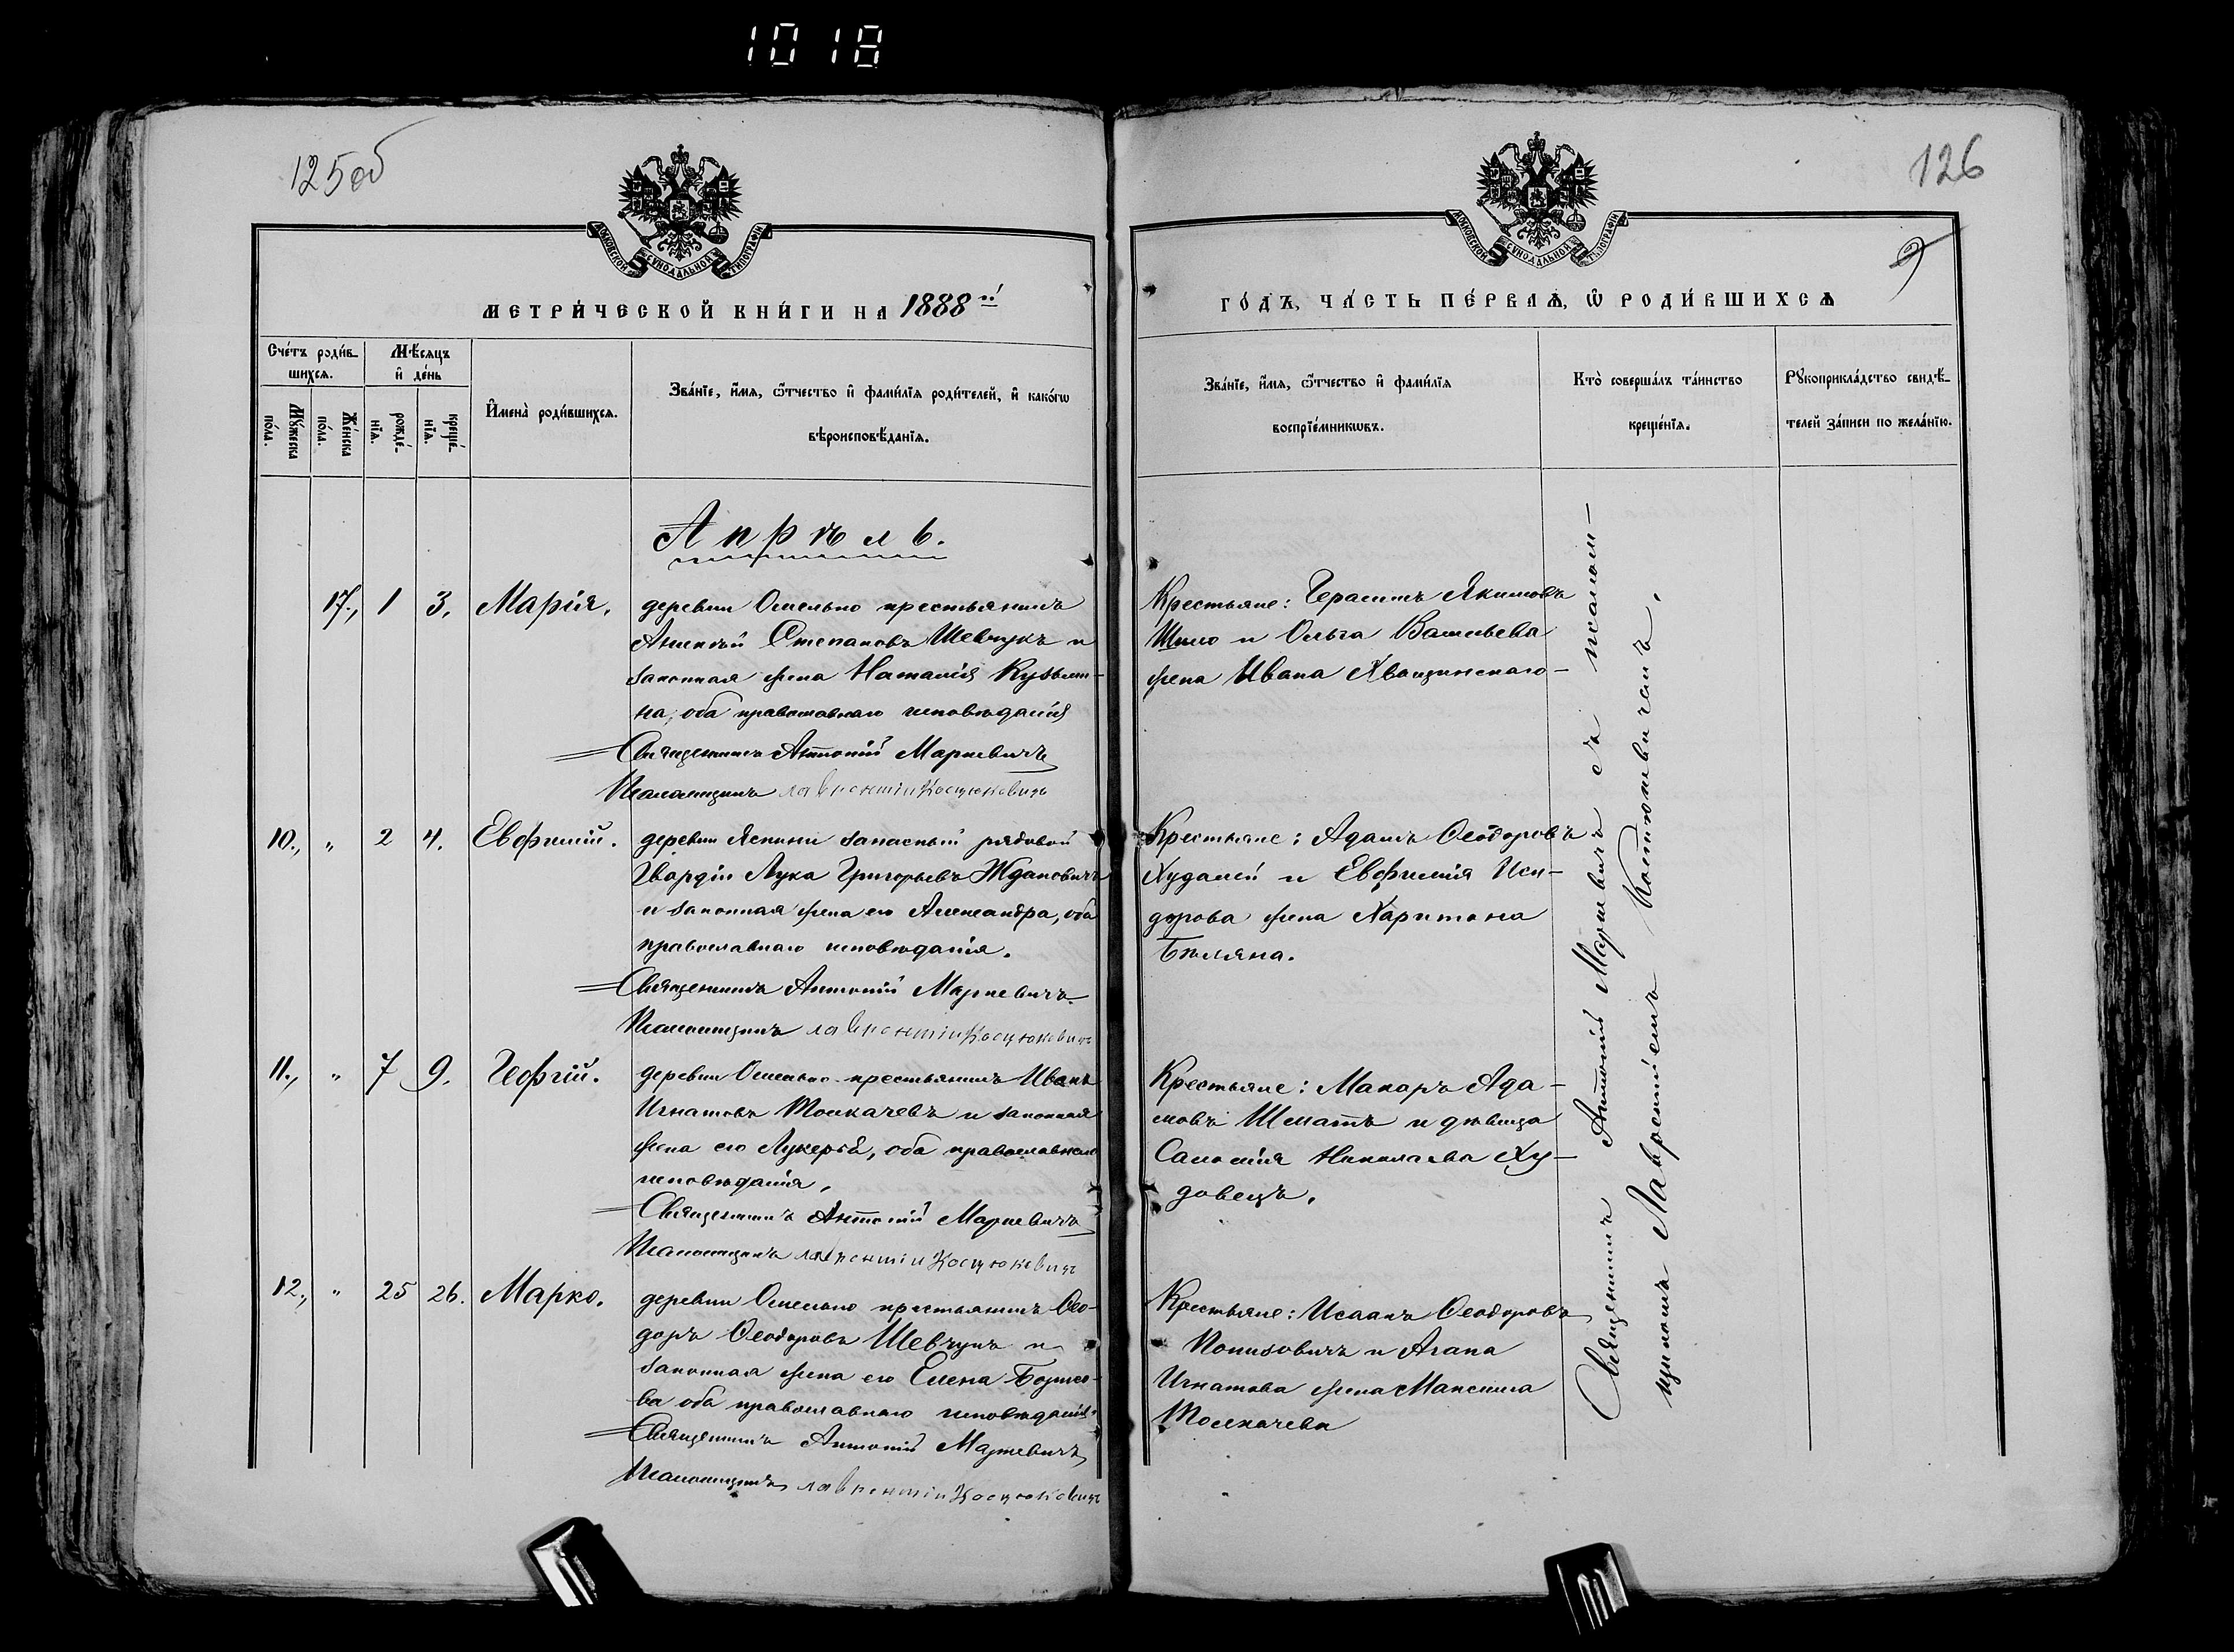 1018
125об
126
9
МОСКОВСКОЙ СѴНОДАЛЬНОЙ ТИПОГРАФІИ
МОСКОВСКОЙ СѴНОДАЛЬНОЙ ТИПОГРАФІИ
МЕТРИ́ЧЕСКОЙ КНИ́ГИ НА 1888й
ГО́ДЪ, ЧА́СТЬ ПЕ́РВАѦ, Ѡ РОДИ́ВШИХСѦ
Сче́тъ роди́в-
шихсѧ.
Мѣ́сѧцъ
и҆ де́нь
Мꙋ́жеска
по́ла.
Же́нска
по́ла.
рожде́-
нїѧ.
креще́-
нїѧ.
И҆мена̀ роди́вшихсѧ.
Зва́нїе, и҆́мѧ, ѻ҆́тчество и҆ фами́лїѧ роди́телей, и҆ како́гѡ
вѣроисповѣ́данїѧ.
Зва́нїе, и҆́мѧ, ѻ҆́тчество и҆ фами́лїѧ
воспрїе́мникѡвъ.
Кто̀ соверша́лъ та́инство
креще́нїѧ.
Рꙋкоприкла́дство свидѣ́-
телей за́писи по жела́нїю.
Апрѣль.
17., 1 3. Марія.
деревни Омельно крестьянинъ
Алексѣй Степановъ Шевчукъ и
законная жена Наталія Кузьми-
на, оба православнаго исповѣданія
Священникъ Антоній Маркевичъ
Псаломщикъ Лаврентій Косцюкевичъ
Крестьяне: Герасимъ Якимовъ
Шило и Ольга Васильева
жена Ивана Хващинскаго
10., „ 2 4. Евфимій.
деревни Ясенки запасный рядовой
Гвардіи Лука Григорьевъ Ждановичъ
и законная жена его Александра, оба
православнаго исповѣданія.
Священникъ Антоній Маркевичъ
Псаломщикъ Лаврентій Косцюкевичъ
Крестьяне: Адамъ Ѳеодоровъ
Худалей и Евфимія Иси-
дорова жена Харитона
Бѣляна.
11., „ 7 9. Георгій.
деревни Омельно крестьянинъ Иванъ
Игнатовъ Толкачевъ и законная
жена его Лукерья, оба православнаго
исповѣданія,
Священникъ Антоній Маркевичъ
Псаломщикъ Лаврентій Косцюкевичъ
Крестьяне: Макаръ Ада-
мовъ Шматъ и дѣвица
Саломія Николаева Ху-
довецъ.
12., „ 25 26. Марко.
деревни Омельно крестьянинъ Ѳео-
доръ Ѳеодоровъ Шевчукъ и
законная жена его Елена Борисо-
ва оба православнаго исповѣданія.
Священникъ Антоній Маркевичъ
Псаломщикъ Лаврентій Косцюкевичъ
Крестьяне: Исаакъ Ѳеодоровъ
Понизовичъ и Агапа
Игнатова жена Максима
Толкачева
Священникъ Антоній Маркевичъ съ псалом-
щикомъ Лаврентіемъ Костюкевичемъ.